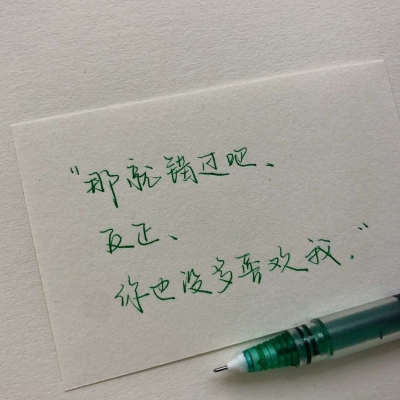 "那就错过吧、
反正、
你也没多喜欢我."